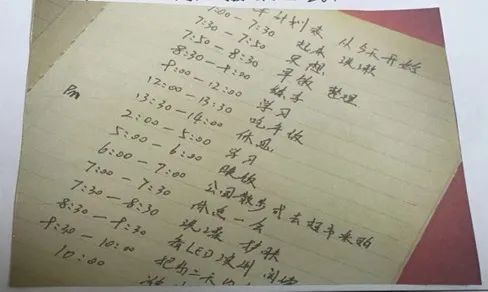 计划表 从今天开始
7:00 — 7:30 起床 洗漱
7:30 — 7:50 早
7:50 — 8:30 早饭 整理
8:30 — 9:00 练字
9:00 — 12:00 学习
12:00 — 13:30 吃午饭
Pm 13:30 — 14:00 休息
2:00 — 5:00 学习
5:00 — 6:00 晚饭
6:00 — 7:00 公园散步或去超市采购
7:00 — 7:30 休息一会
7:30 — 8:30 洗澡 护肤
8:30 — 9:30 看LED
9:30 — 10:00 把第二天
10:00